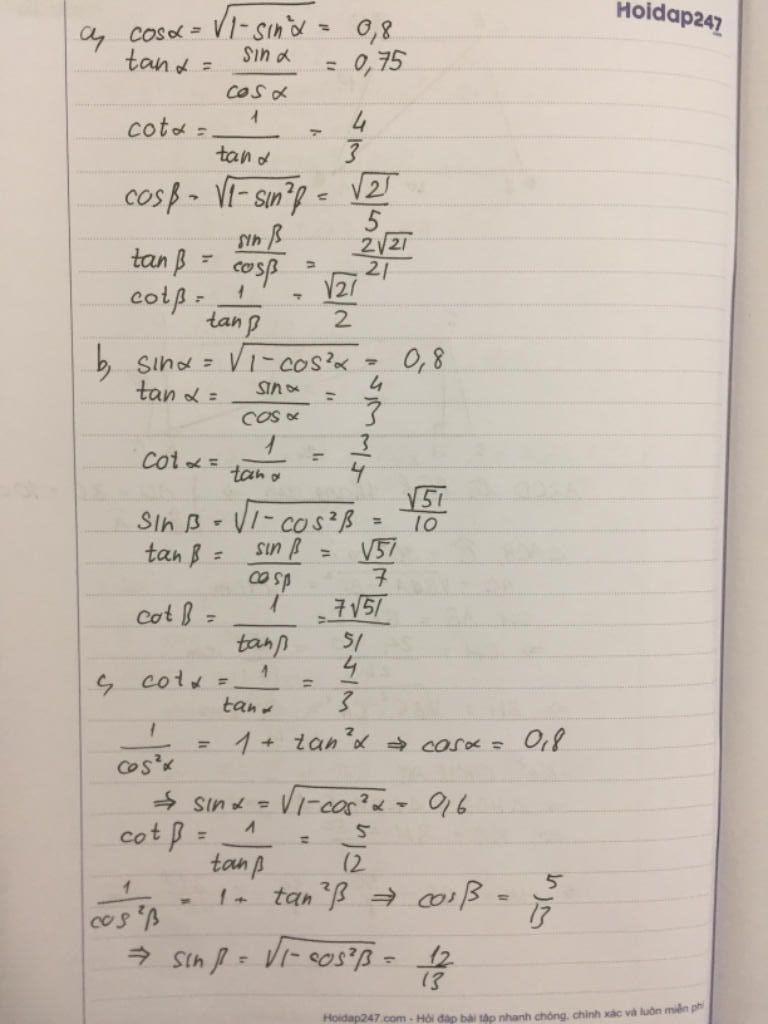 Hoidap247
a, cosα = √(1-sin²α) = 0,8
tanα = sinα/cosα = 0,75
cotα = 1/tanα = 4/3
cosβ = √(1-sin²β) = √21/5
tanβ = sinβ/cosβ = 2√21/21
cotβ = 1/tanβ = √21/2
b, sinα = √(1-cos²α) = 0,8
tanα = sinα/cosα = 4/3
cotα = 1/tanα = 3/4
sinβ = √(1-cos²β) = √51/10
tanβ = sinβ/cosβ = √51/7
cotβ = 1/tanβ = 7√51/51
c, cotα = 1/tanα = 4/3
1/cos²α = 1 + tan²α ⇒ cosα = 0,8
⇒ sinα = √(1-cos²α) = 0,6
cotβ = 1/tanβ = 5/12
1/cos²β = 1 + tan²β ⇒ cosβ = 5/13
⇒ sinβ = √(1-cos²β) = 12/13
Hoidap247.com - Hỏi đáp bài tập nhanh chóng, chính xác và luôn miễn phí